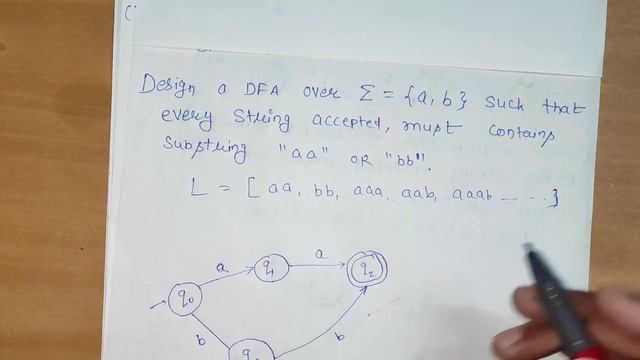 Design a DFA over Σ = {a, b} such that
every string accepted, must contains
substring "aa" OR "bb".
L = [ aa, bb, aaa, aab, aaab --- --- }
a
a
q0
q1
q2
b
b